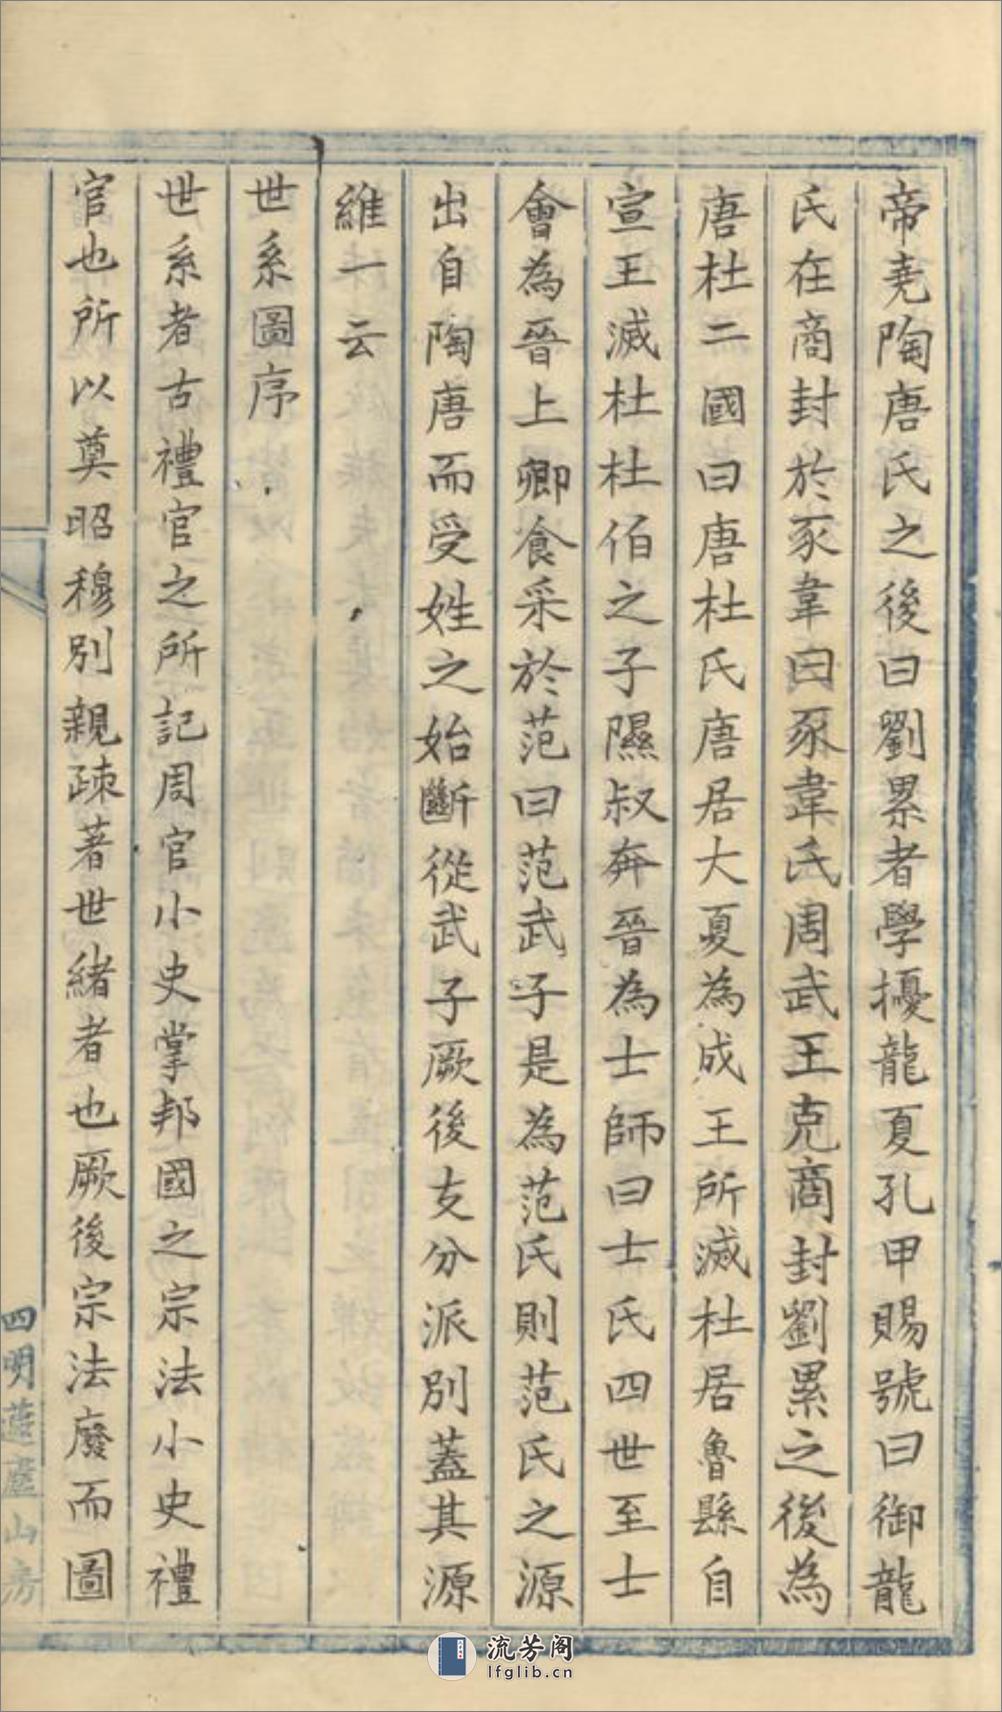 帝堯陶唐氏之後曰劉累者學擾龍夏孔甲賜號曰御龍
氏在商封於豕韋曰豕韋氏周武王克商封劉累之後為
唐杜二國曰唐杜氏唐居大夏為成王所滅杜居魯縣自
宣王滅杜杜伯之子隰叔奔晉為士師曰士氏四世至士
會為晉上卿食采於范曰范武子是為范氏則范氏之源
出自陶唐而受姓之始斷從武子厥後支分派別蓋其源
維一云
世系圖序
世系者古禮官之所記周官小史掌邦國之宗法小史禮
官也所以奠昭穆別親疎著世緒者也厥後宗法廢而圖
四明 山房
流芳阁
lfglib.cn